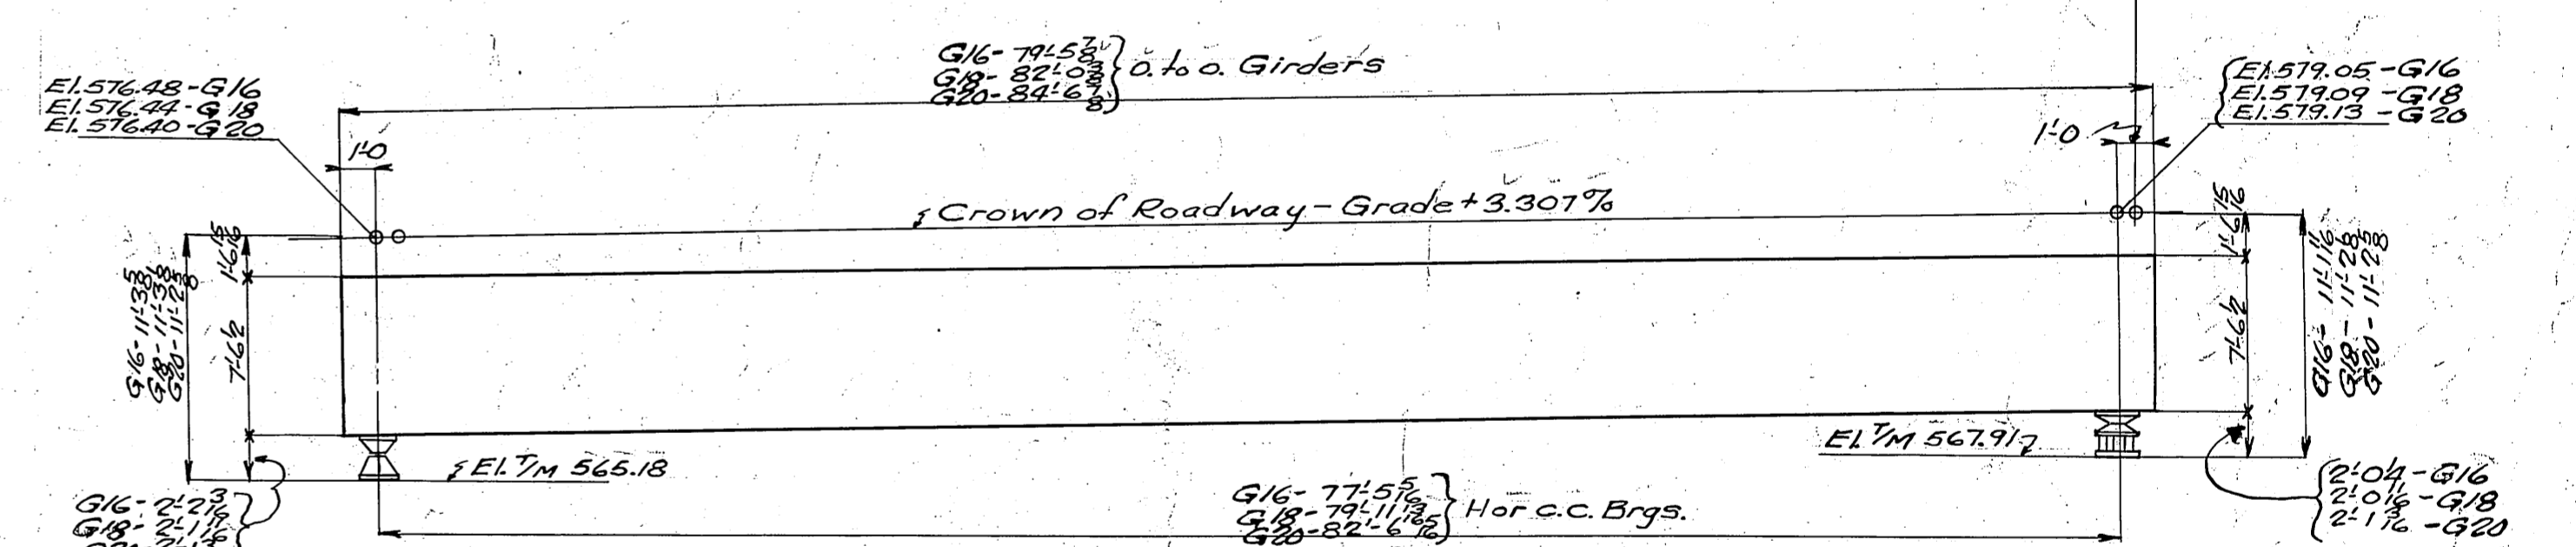 G16- 79'-5 7/8
G18- 82'-0 3/8
G20- 84'-6 7/8
O. to O. Girders
El. 576.48 - G16
El. 576.44 - G18
El. 576.40 - G20
El. 579.05 - G16
El. 579.09 - G18
El. 579.13 - G20
1'-0
1'-0
Crown of Roadway - Grade + 3.307%
1'-6 15/16
7'-6 1/2
G16 - 11'-3 5/8
G18 - 11'-3 1/8
G20 - 11'-2 5/8
1'-6 15/16
7'-6 1/2
G16 - 11'-1 11/16
G18 - 11'-2 1/8
G20 - 11'-2 5/8
El. T/M 565.18
El. T/M 567.91
G16 - 2'-2 3/16
G18 -
G16 - 77'-5 5/16
G18 - 79'-11 13/16
G20 - 82'-6 5/16
Hor c.c. Brgs.
2'-0 1/4 - G16
- G18
2'-1 3/16 - G20